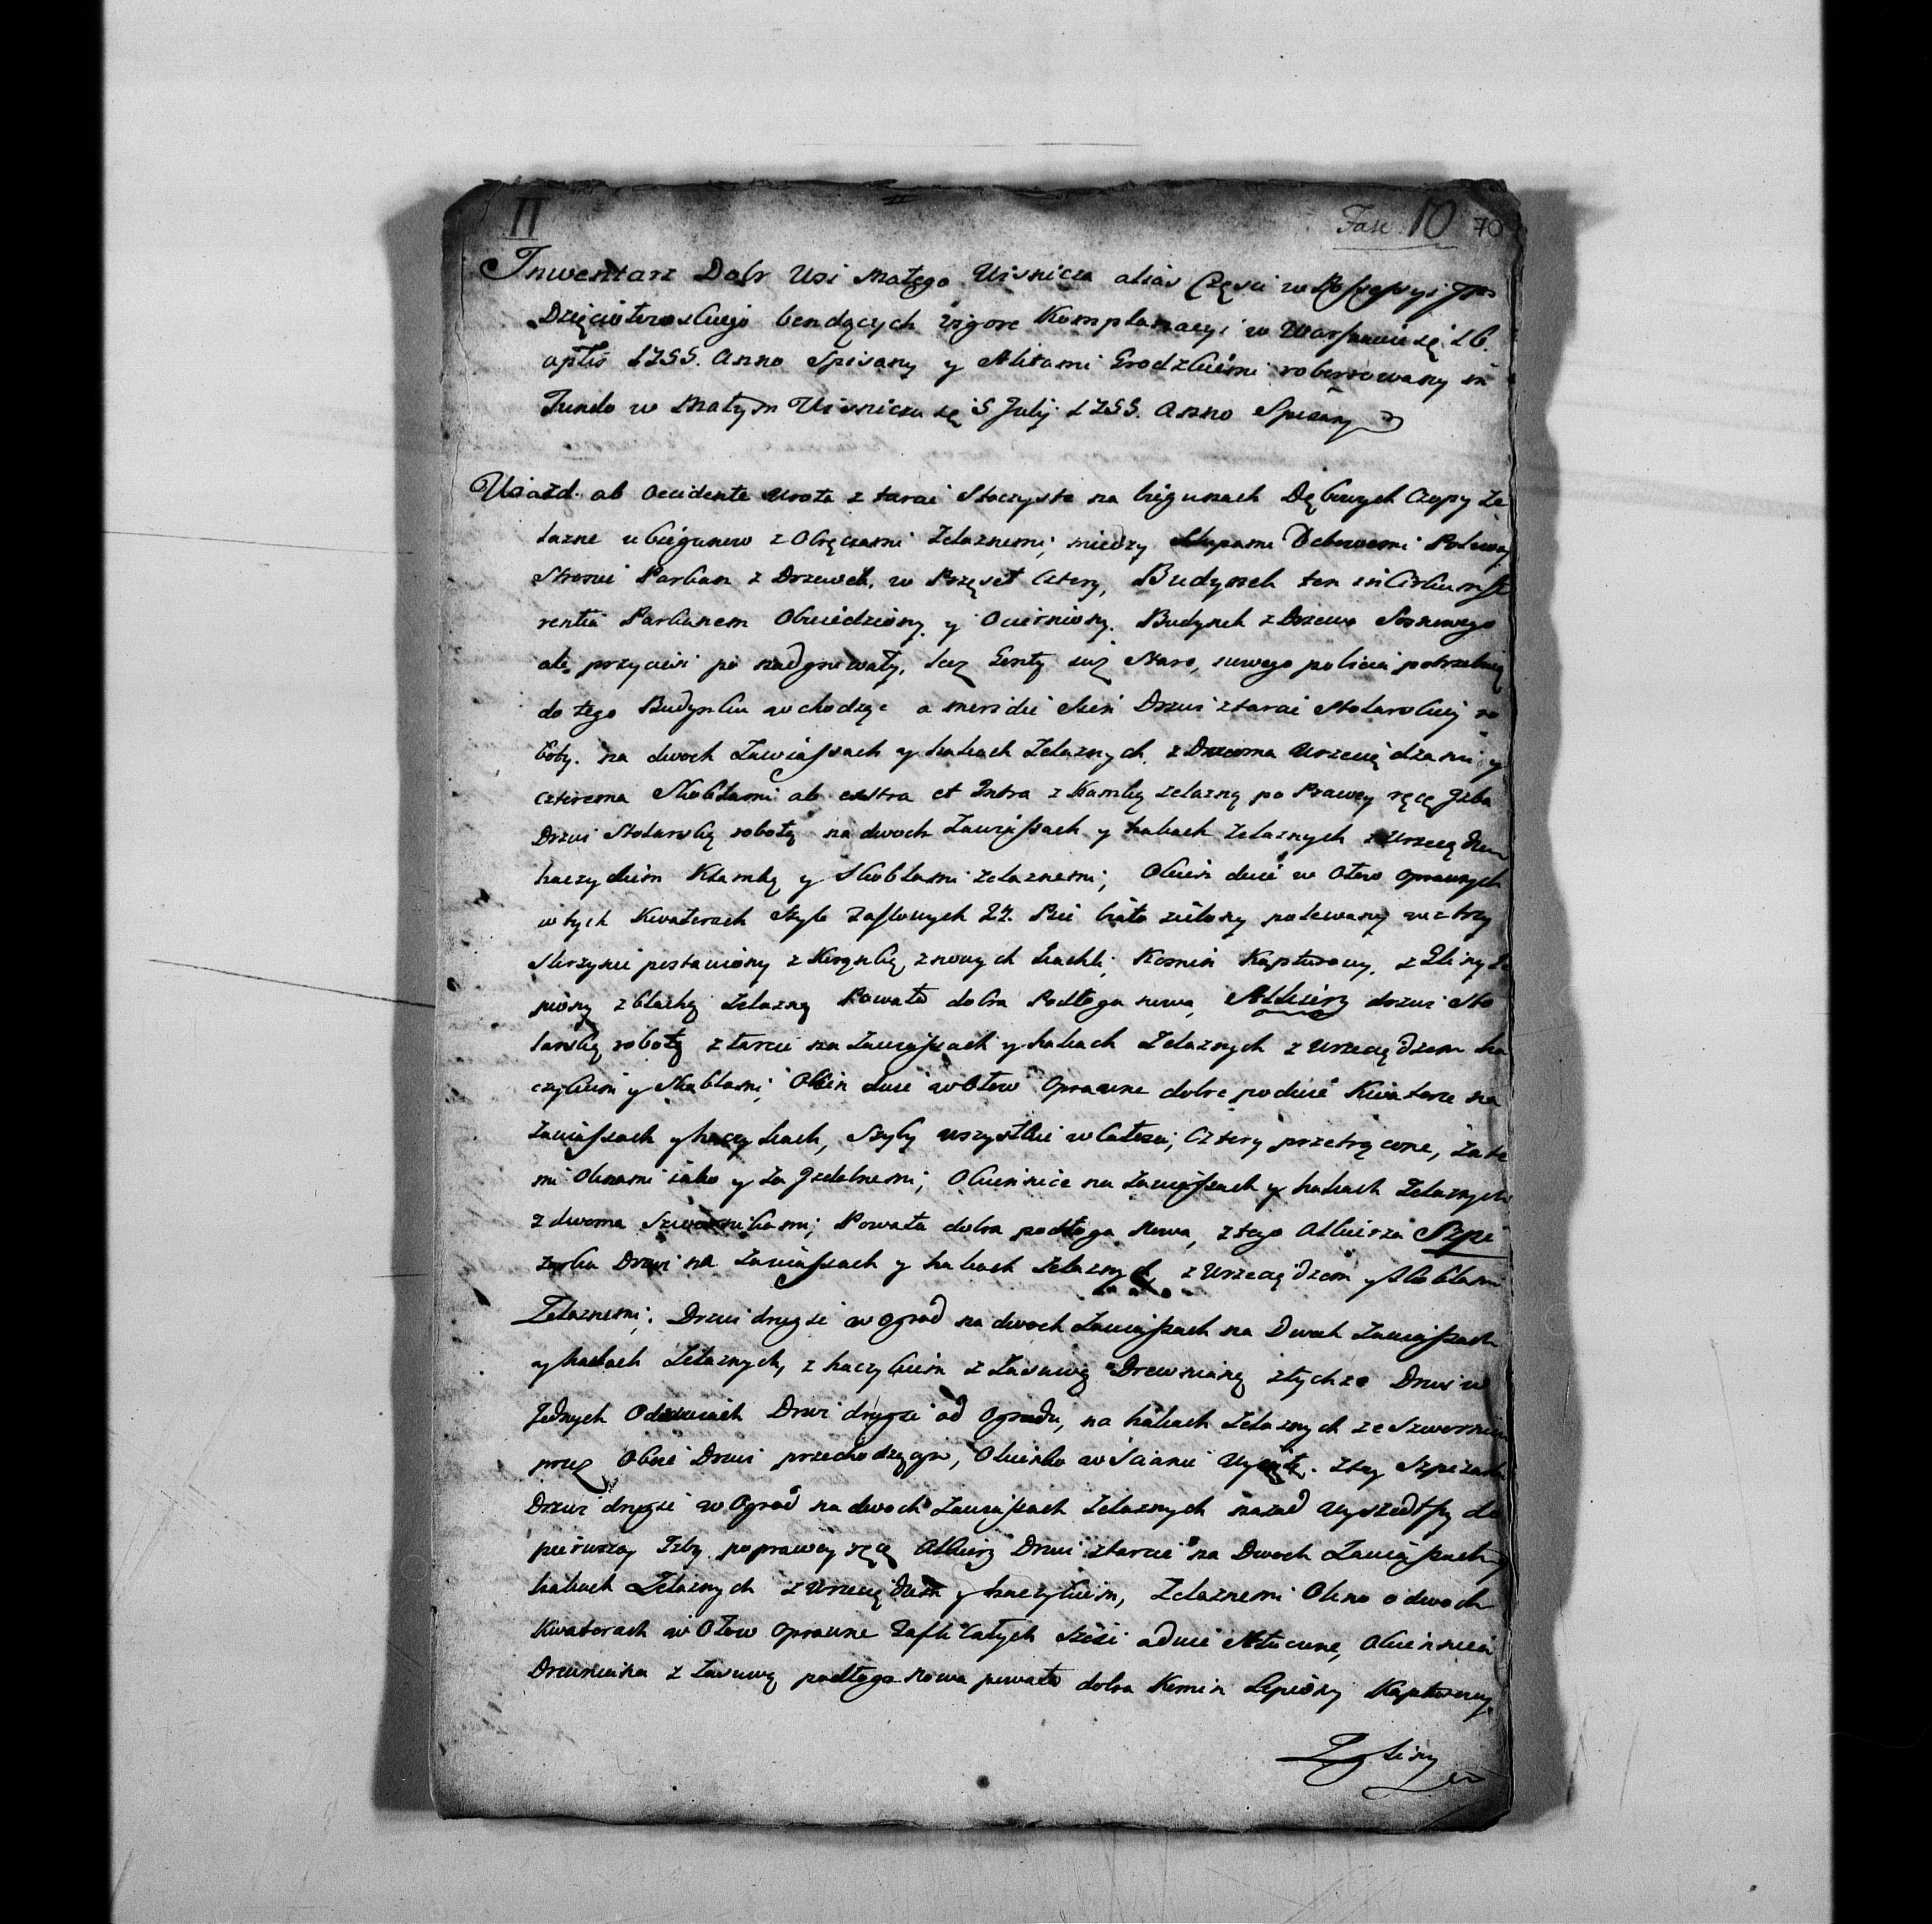 II
Fasc 10 70
Inwentarz Dobr Wsi Małego Wisnicza alias Częsci w Possessyi
Dzięciołowskiego bendących vigore Komplanacyi w Warszawie 16.
1755. Anno Spisany y Aktami Grodzkiemi roborowany in
Fundo w Małym Wisniczu 5 Julij 1755. Anno Spisany
Wiazd ab occidente Wrota z tarcic Stoczyste na biegunach Dębowych Czopy że
lazne u biegunow z Obręczami żelaznemi, między Słupami Debowemi Po lewey
Stronie Parkan z Drzewek, w Przęseł cztery, Budynek ten in Circumfe
rentia Parkanem Obwiedziony y Ocierniony. Budynek z Drzewa Sosnowego
ale przyciesi po nadgniwały, lecz Gonty iuż Stare, nowego poszicia potrzebuią
do tego Budynku wchodząc a meridie Sień Drzwi z tarcic Stolarskiey ro
boty. na dwoch Zawiassach y hakach żelaznych, z Dwoma Wrzeciądzami y
czterema Skoblami ab extra et Intra z Klamką żelazną po Prawey ręce Izba
Drzwi Stolarską robotą na dwoch Zawiassach y hakach żelaznych z Wrzeciądzem
haczykiem Klamką y Skoblami żelaznemi, Okien dwie w Ołow oprawnych
w tych Kwaterach Szyb Taflowych 24. Piec biało zielony polewany we trzy
Skrzynie postawiony z Korąnką z nowych kachli, Komin Kapturowy, z Gliny le
piony z blachą żelazną Powała dobra Podłoga nowa, Alkierz drzwi Sto
larską robotą z tarcic na Zawiassach y hakach żelaznych z Wrzeciądzem ha
czykiem y Skoblami, Okien dwie w Ołow Oprawne dobre po dwie Kwatere na
Zawiassach y haczykach, Szyby wszystkie w całości, cztery przetrącone, Za te
mi Oknami iako y za Izdebnemi, Okiennice na Zawiassach y hakach żelaznych
z dwoma Szwornikami, Powała dobra podłoga Nowa, z tego Alkierza Szpi
żarka Drzwi na Zawiassach y hakach żelaznych, z Wrzeciądzem y Skoblami
Żelaznemi, Drzwi drugie w ogrod na dwoch Zawiassach na Dwoch Zawiassach
y hakach żelaznych, z haczykiem z Zasuwą Drewnianą z tychze Drzwi w
Jednych Odrzwiach Drzwi drugie od Ogrodu, na hakach żelaznych ze Szwornem
przez Oboie Drzwi przechodzącym, Okienko w Scianie Wycięte. z tey Szpiżarki
Drzwi drugie w Ogrod na dwoch Zawiassach żelaznych nazad Wyszedłszy do
pierwszey Izby po prawey ręce Alkierz Drzwi z tarcic na Dwoch Zawiassach y
hakach żelaznych z Wrzeciądzem y haczykiem, Żelaznemi Okno o dwoch
Kwaterach w Ołow oprawne Tafli Całych Sześć a dwie Stłuczone, Okiennica
Drewniana z Zasuwą podłoga nowa powała dobra Komin Lepiony Kapturowy
Z gliny